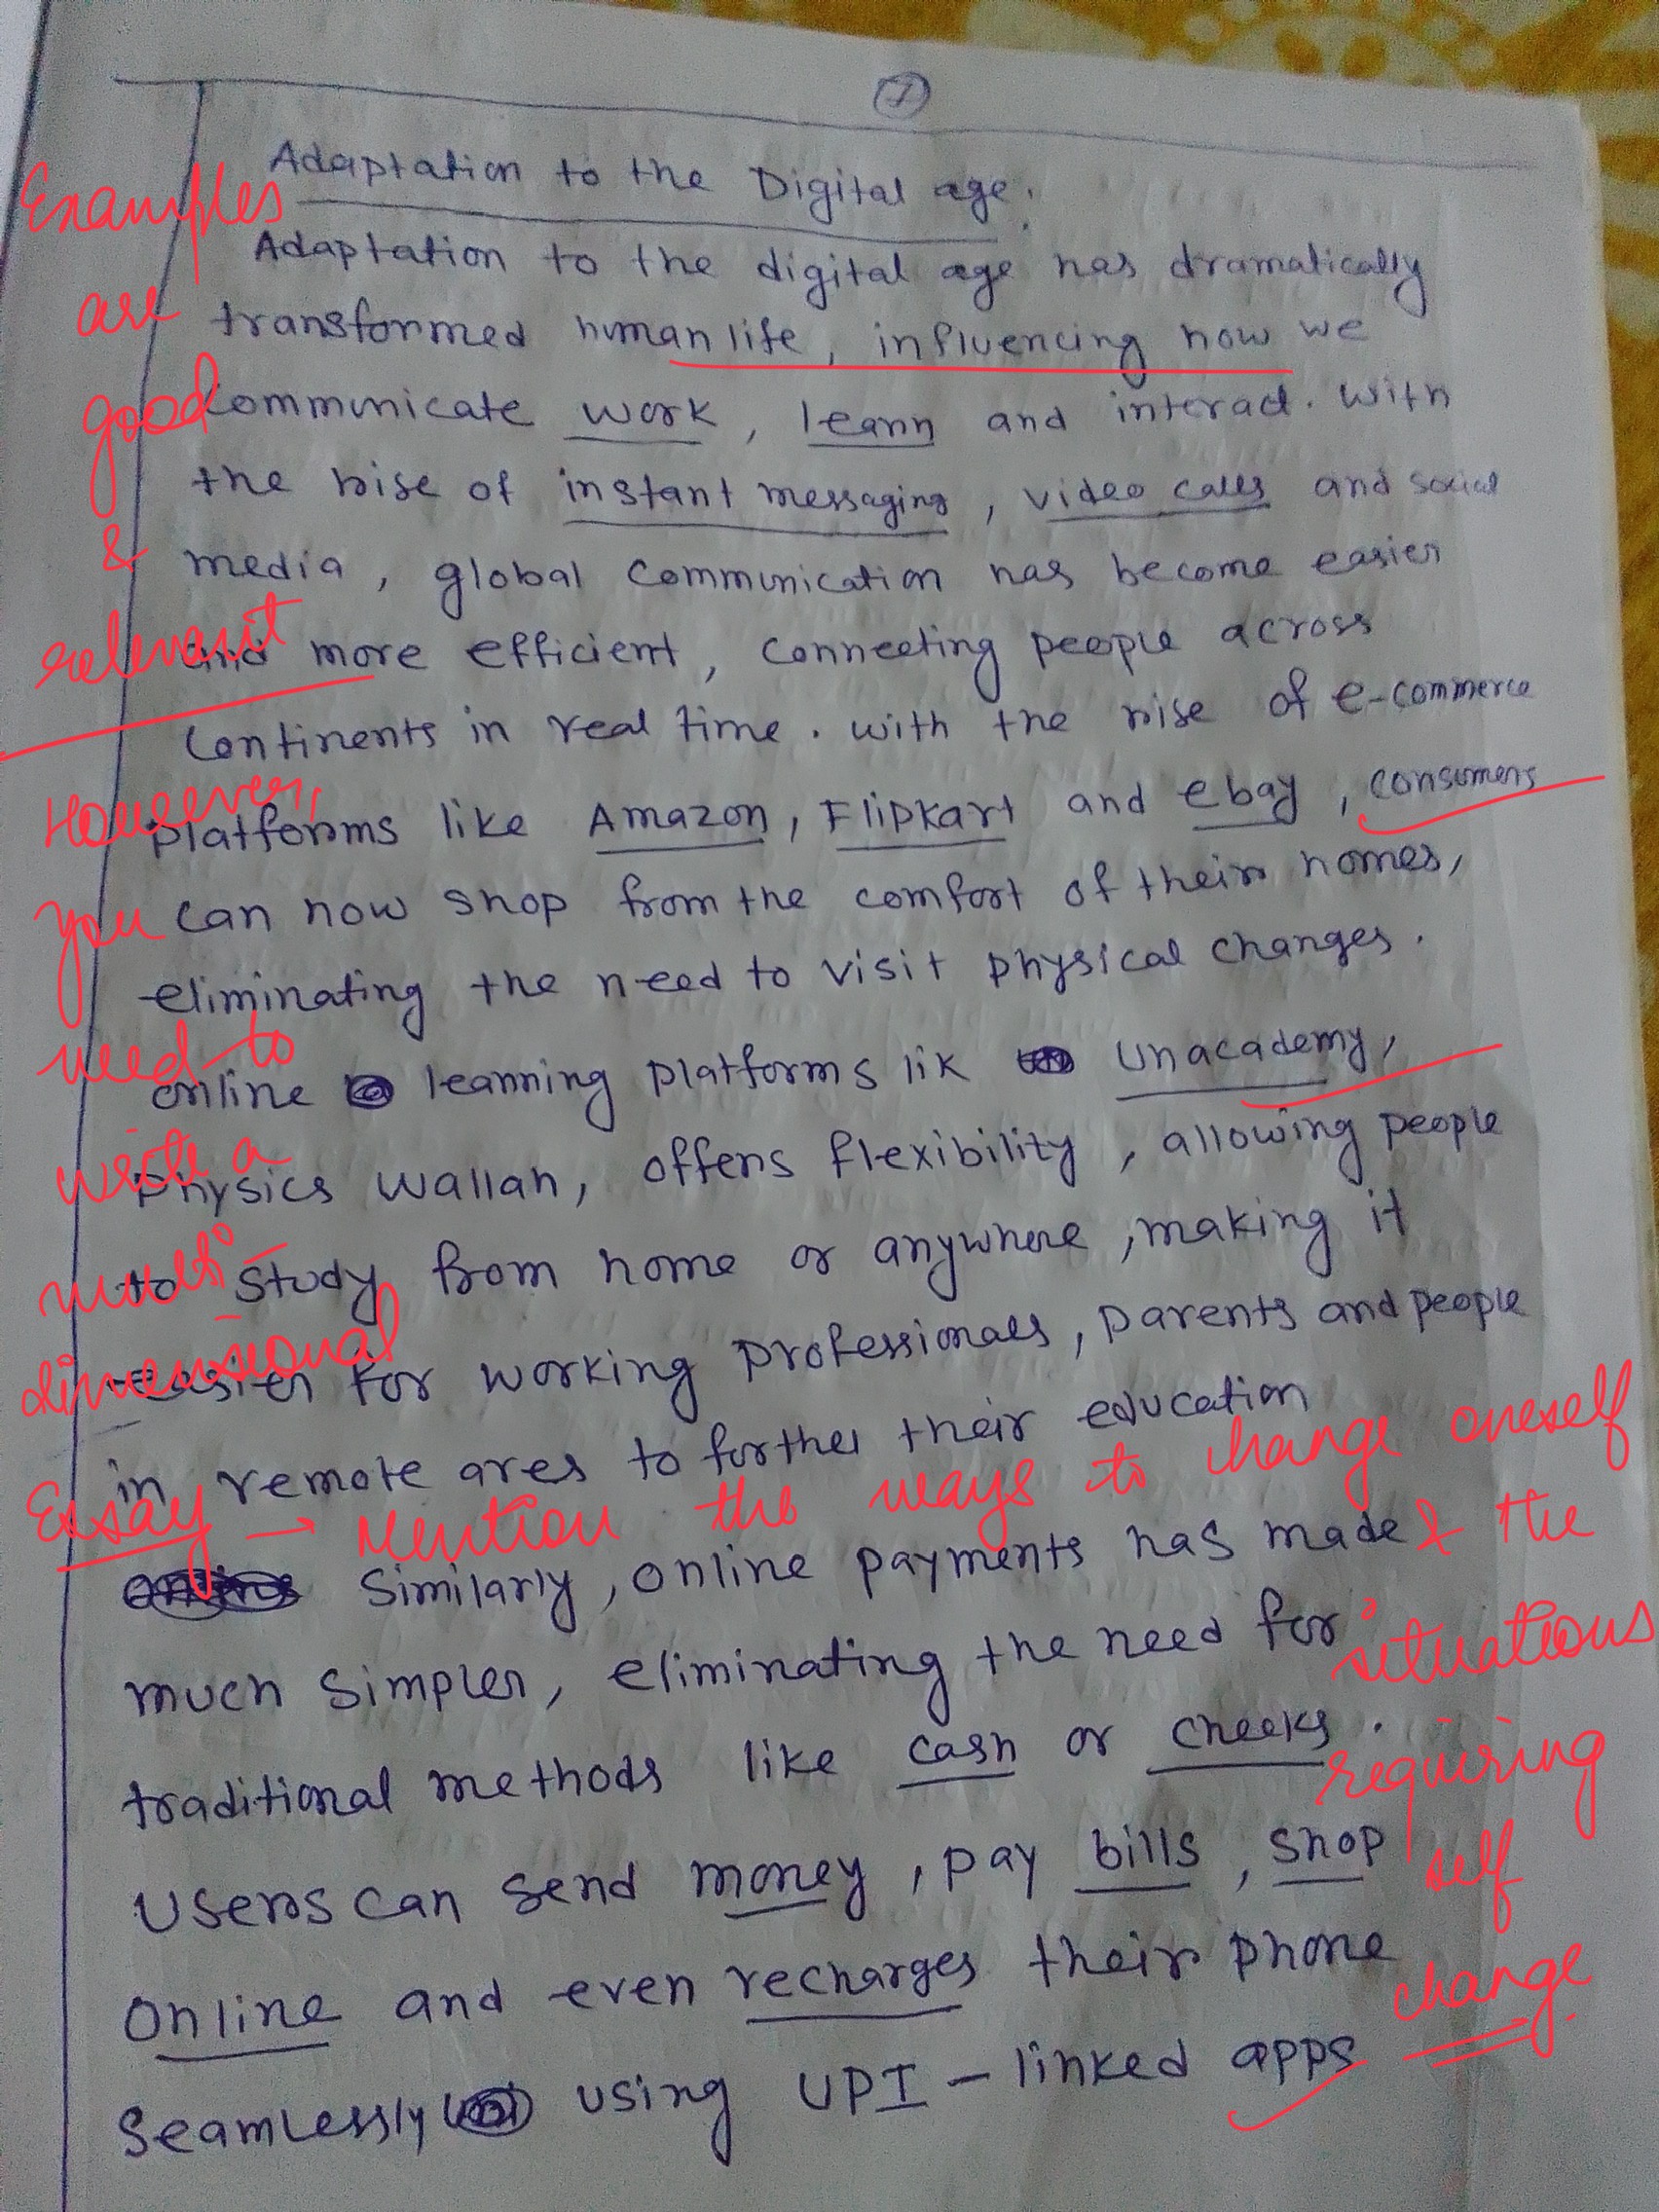 7
Adaptation to the Digital age.
Adaptation to the digital age has dramatically
transformed human life, influencing how we
communicate work, learn and interact. With
the rise of instant messaging, video calls and social
media, global communication has become easier
and more efficient, connecting people across
continents in real time. with the rise of e-commerce
platforms like Amazon, Flipkart and ebay, consumers
can now shop from the comfort of their homes,
eliminating the need to visit physical changes.
online learning platforms lik Unacademy,
Physics Wallah, offers flexibility, allowing people
to study from home or anywhere, making it
easier for working professionals, parents and people
in remote ares to further their education
Similarly, online payments has made
much simpler, eliminating the need for
traditional methods like cash or cheeks.
Users can send money, pay bills, shop
online and even recharges their phone
seamlessly using UPI - linked apps
Examples
are
good
&
relevant
However,
you
need to
write a
multi-
dimensional
Essay → Mention the ways to change oneself
& the
situations
requiring
self
change.